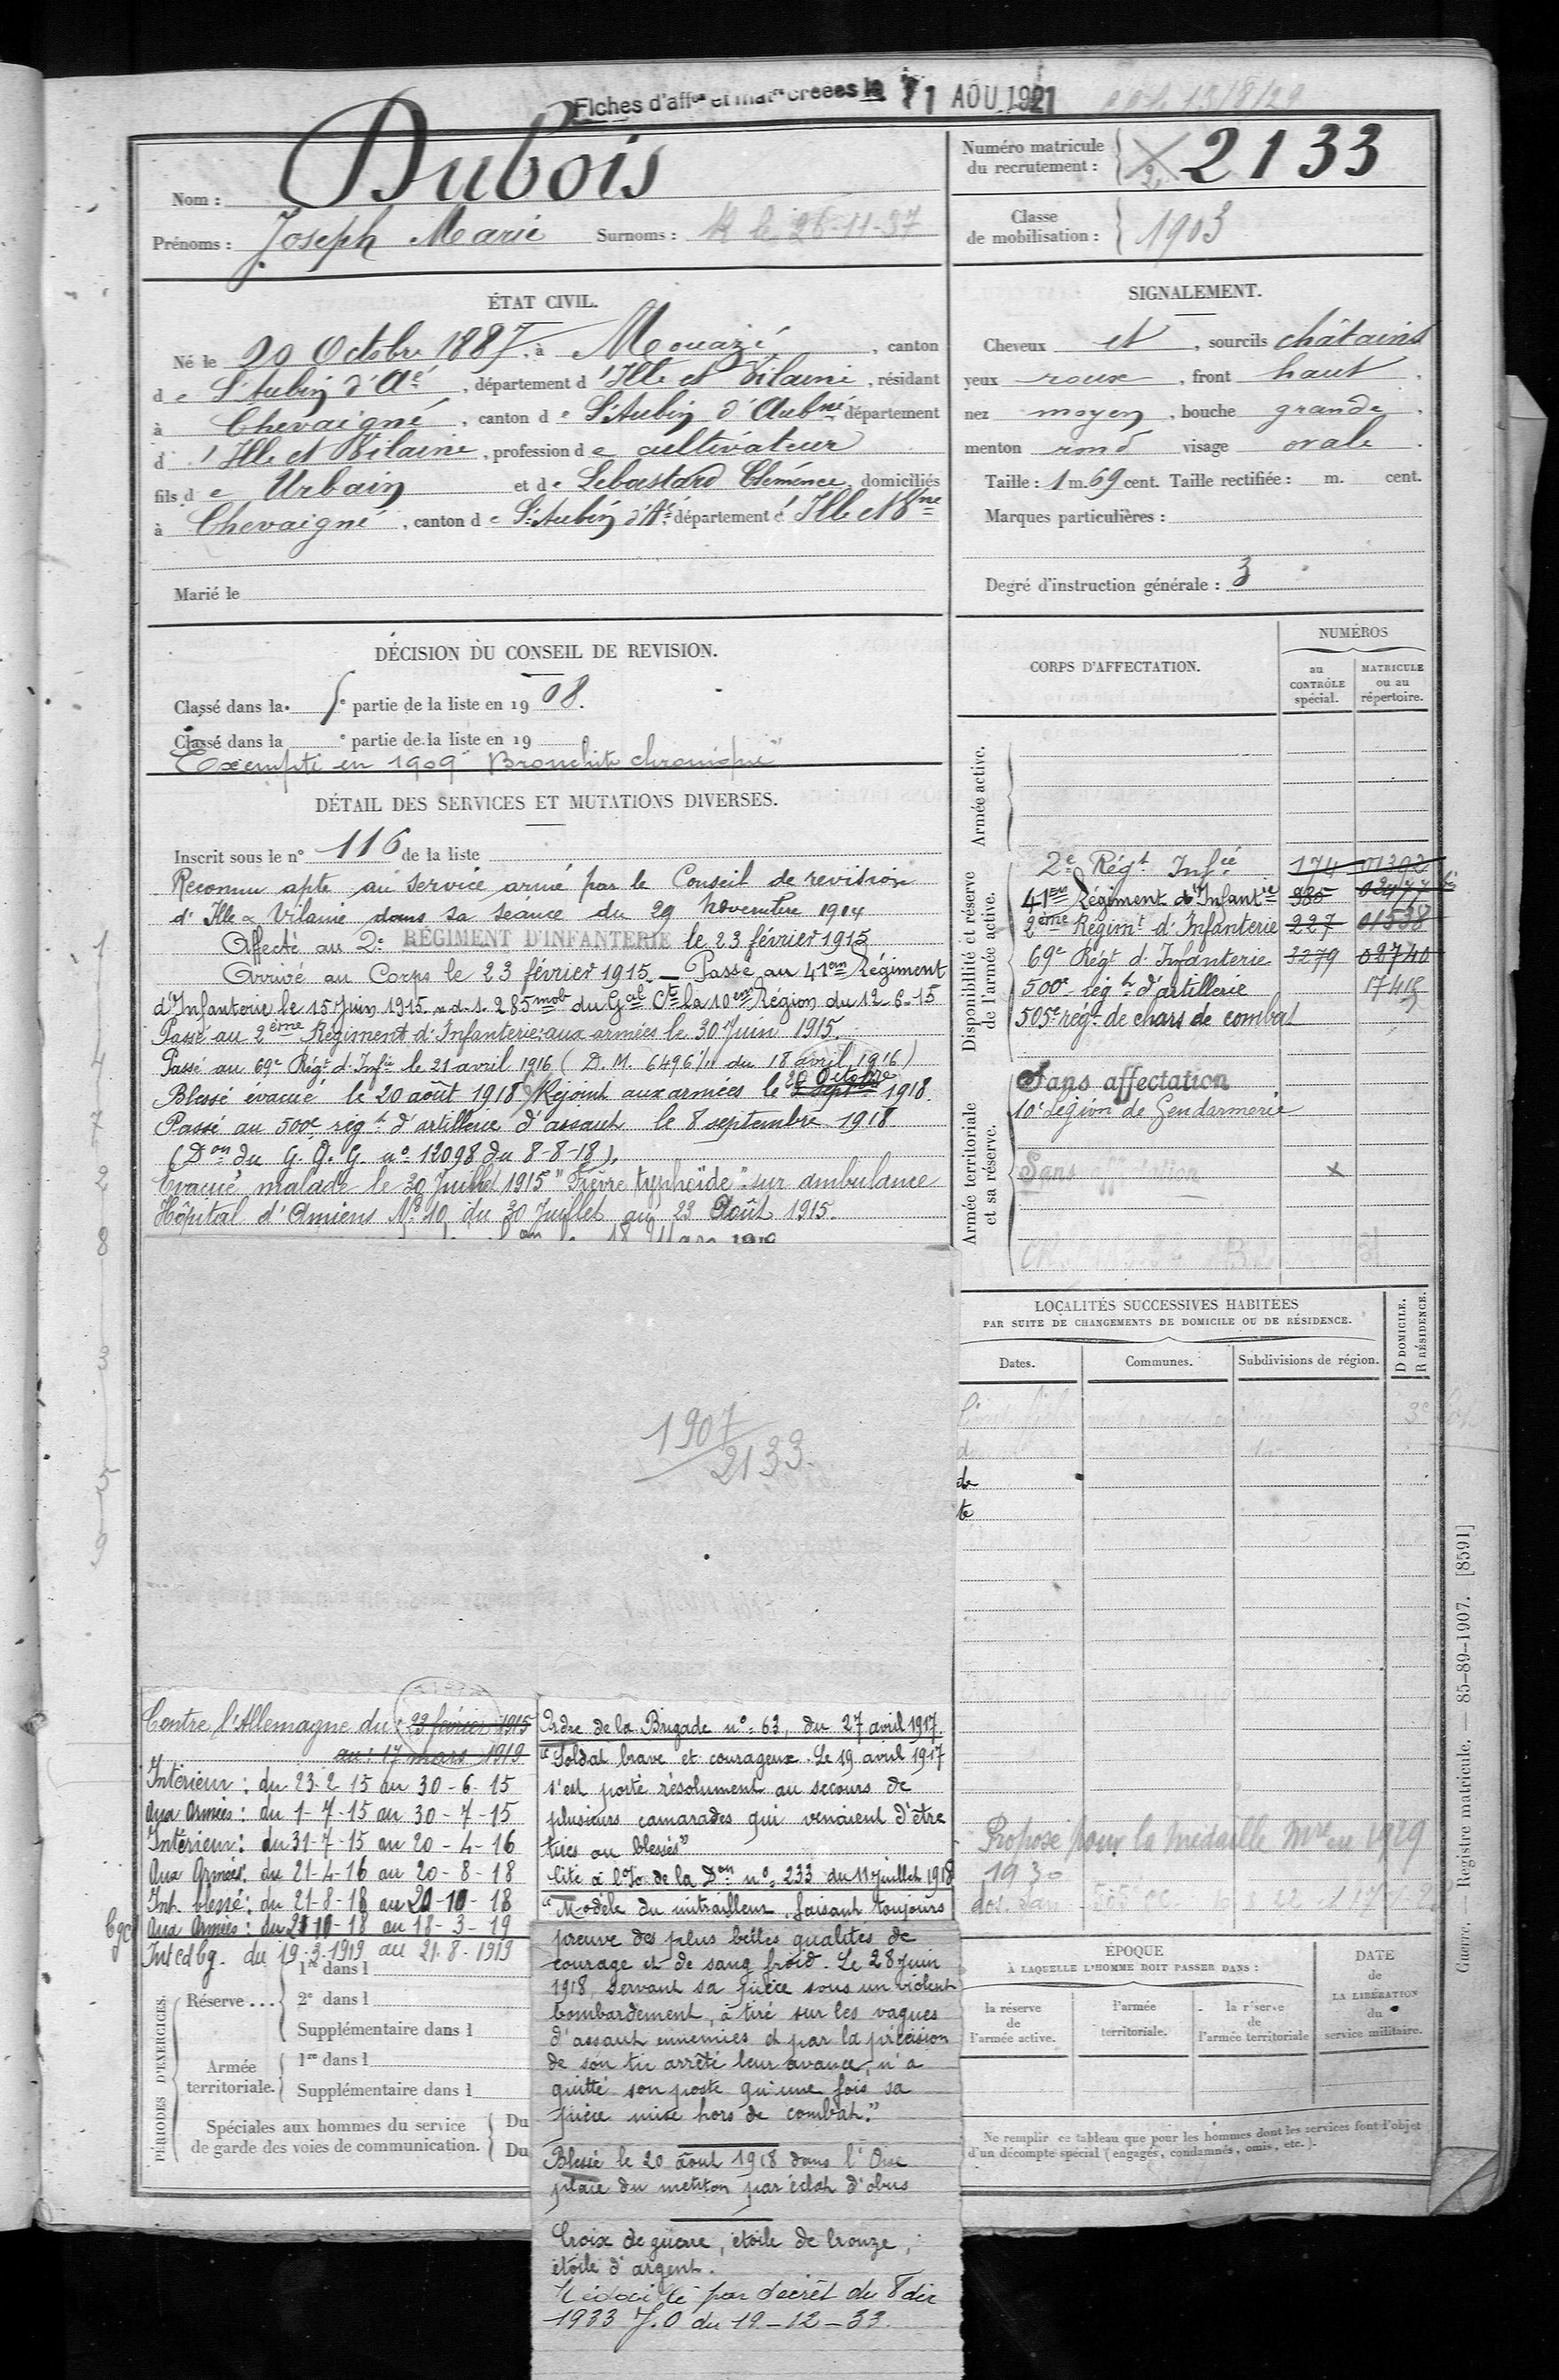 Fiches d'aff^on et mat^re créées le 1 AOU 1921
Nom : Dubois
Prénoms : Joseph Marie Surnoms :
Numéro matricule
du recrutement : 2133
Classe
de mobilisation : 1903
ÉTAT CIVIL.
Né le 20 Octobre 1887, à Mouazé, canton
de St Aubin d'Aé, département d'Ille et Vilaine, résidant
à Chevaigné, canton de St Aubin d'Aubné département
d'Ille et Vilaine, profession de cultivateur
fils de Urbain et de Lebastard Clémence, domiciliés
à Chevaigné, canton de St Aubin d'Aé département d'Ille et Vne
Marié le
SIGNALEMENT.
Cheveux et, sourcils châtains
yeux roux, front haut,
nez moyen, bouche grande,
menton rond visage ovale.
Taille : 1 m. 69 cent. Taille rectifiée : m. cent.
Marques particulières :
Degré d'instruction générale : 3
DÉCISION DU CONSEIL DE REVISION.
Classé dans la 5e partie de la liste en 1908.
Classé dans la e partie de la liste en 19
Exempté en 1909 "Bronchite chronique"
DÉTAIL DES SERVICES ET MUTATIONS DIVERSES.
Inscrit sous le n° 116 de la liste
Reconnu apte au service armé par le Conseil de revision
d'Ille & Vilaine dans sa séance du 29 Novembre 1914
Affecté au 2e RÉGIMENT D'INFANTERIE le 23 février 1915
Arrivé au Corps le 23 février 1915 — Passé au 41em Régiment
d'Infanterie le 15 Juin 1915. n.d.s. 285mob du Gal Ct la 10em Région du 12-6-15
Passé au 2ème Régiment d'Infanterie aux armées le 30 Juin 1915.
Passé au 69e Régt d'Infie le 21 avril 1916 (D.M. 6496 1/11 du 18 avril 1916)
Blessé évacué le 20 août 1918. Rejoint aux armées le 20 Octobre 1918.
Passé au 500e régt d'artillerie d'assaut le 8 septembre 1918
(Don du G.Q.G. n° 12098 du 8-8-18).
Evacué malade le 30 Juillet 1915 "Fièvre typhoïde" sur ambulance
Hôpital d'Amiens N° 10 du 30 Juillet au 23 Août 1915.
1907
2133
CORPS D'AFFECTATION.
NUMÉROS
au
CONTRÔLE
spécial.
MATRICULE
ou au
répertoire.
Armée active.
Disponibilité et réserve
de l'armée active.
2e Régt Infie 174 01392
41em Régiment d'Infantie 985 02477 bis
2ème Régimt d'Infanterie 227 01538
69e Régt d'Infanterie 2279 02740
500e régt d'artillerie 17415
505e régt de chars de combat
Armée territoriale
et sa réserve.
Sans affectation
10e légion de Gendarmerie
Sans affectation x
LOCALITÉS SUCCESSIVES HABITÉES
PAR SUITE DE CHANGEMENTS DE DOMICILE OU DE RÉSIDENCE.
Dates. Communes. Subdivisions de région. D DOMICILE. R RÉSIDENCE.
1
4
7
2
8
3
5
9
Contre l'Allemagne du : 23 février 1915
au : 17 mars 1919
Intérieur : du 23-2-15 au 30-6-15
Aux Armées : du 1-7-15 au 30-7-15
Intérieur : du 31-7-15 au 20-4-16
Aux Armées : du 21-4-16 au 20-8-18
Int. blessé : du 21-8-18 au 20-10-18
Cgc Aux Armées : du 21-10-18 au 18-3-19
Int cdbg. du 19-3-1919 au 21-8-1919
PÉRIODES D'EXERCICES.
Réserve ... 1re dans l
2e dans l
Supplémentaire dans l
Armée
territoriale. 1re dans l
Supplémentaire dans l
Spéciales aux hommes du service
de garde des voies de communication. Du
Du
Ordre de la Brigade n° 63, du 27 avril 1917.
"Soldat brave et courageux. Le 19 avril 1917
s'est porté résolument au secours de
plusieurs camarades qui venaient d'être
tués ou blessés"
Cité à l'O. de la Don n° 233 du 11 juillet 1918
"Modèle du mitrailleur, faisant toujours
preuve des plus belles qualités de
courage et de sang froid. Le 28 juin
1918, servant sa pièce sous un violent
bombardement, a tiré sur les vagues
d'assaut ennemies et par la précision
de son tir arrêté leur avance, n'a
quitté son poste qu'une fois sa
pièce mise hors de combat."
Blessé le 20 août 1918 dans l'Oise
plaie du menton par éclat d'obus
Croix de guerre, étoile de bronze,
étoile d'argent.
Médaillé par décret du 8 déc
1933 J.O du 19-12-33.
Proposé pour la médaille Mre en 1929
1930
ÉPOQUE
À LAQUELLE L'HOMME DOIT PASSER DANS :
la réserve
de
l'armée active.
l'armée
territoriale.
la réserve
de
l'armée territoriale
DATE
de
LA LIBÉRATION
du
service militaire.
Ne remplir ce tableau que pour les hommes dont les services font l'objet
d'un décompte spécial (engagés, condamnés, omis, etc.).
Guerre. — Registre matricule. — 85-89-1907. [8591]